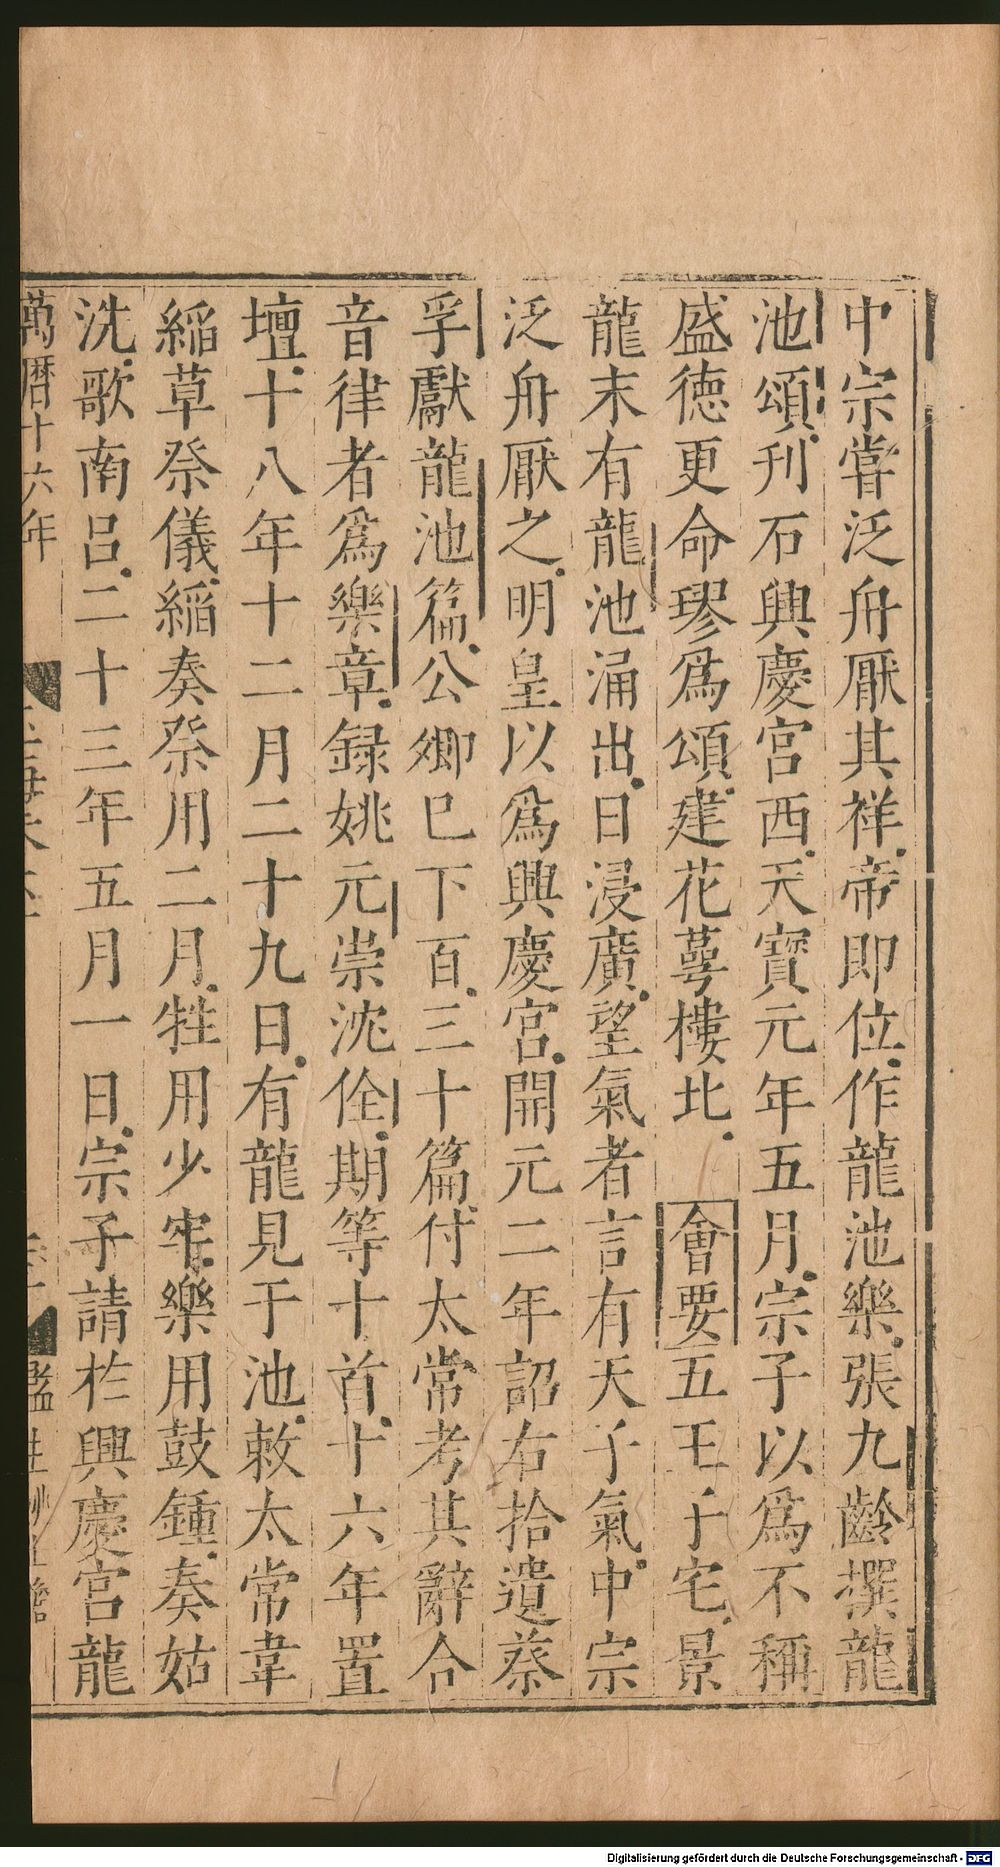 中宗嘗泛舟厭其祥帝即位作龍池樂張九齡撰龍
池頌刊石興慶宮西天寶元年五月宗子以為不稱
盛德更命璆為頌建花萼樓北 會要五王子宅景
龍末有龍池涌出日浸廣望氣者言有天子氣中宗
泛舟厭之明皇以為興慶宮開元二年詔右拾遺蔡
孚獻龍池篇公卿巳下百三十篇付太常考其辭合
音律者為樂章録姚元崇沈佺期等十首十六年置
壇十八年十二月二十九日有龍見于池敕太常韋
縚草祭儀縚奏祭用二月牲用少牢樂用鼓鍾奏姑
洗歌南呂二十三年五月一日宗子請於興慶宮龍
萬曆十六年
監生
Digitalisierung gefördert durch die Deutsche Forschungsgemeinschaft - DFG